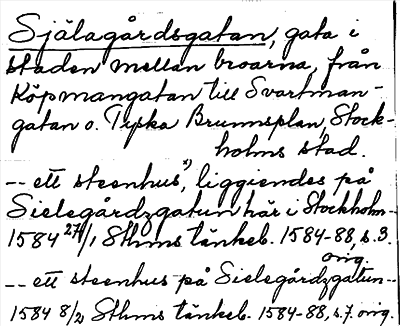 Själagårdsgatan, gata i
staden mellan broarna, från
Köpmangatan till Svartman-
gatan o. Tyska Brunnsplan, Stock-
holms stad.
-- ett steenhus", liggiendes på
Sielegårdzgatun här i Stockholm--
1584 27/1 Sthms tänkeb. 1584-88, s. 3.
orig.
-- ett steenhus på Sielegårdzgatun--
1584 8/2 Sthms tänkeb. 1584-88, s. 7. orig.